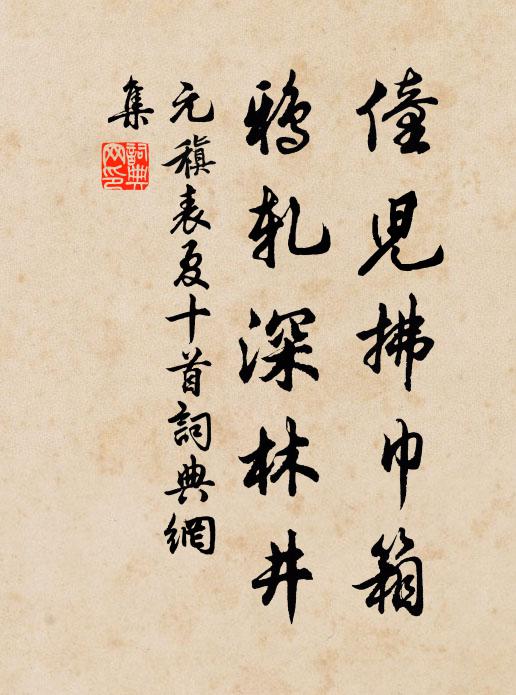 僮兒拂巾箱
鴉軋深林井
元稹表夏十首詞典網
集
詞典網印